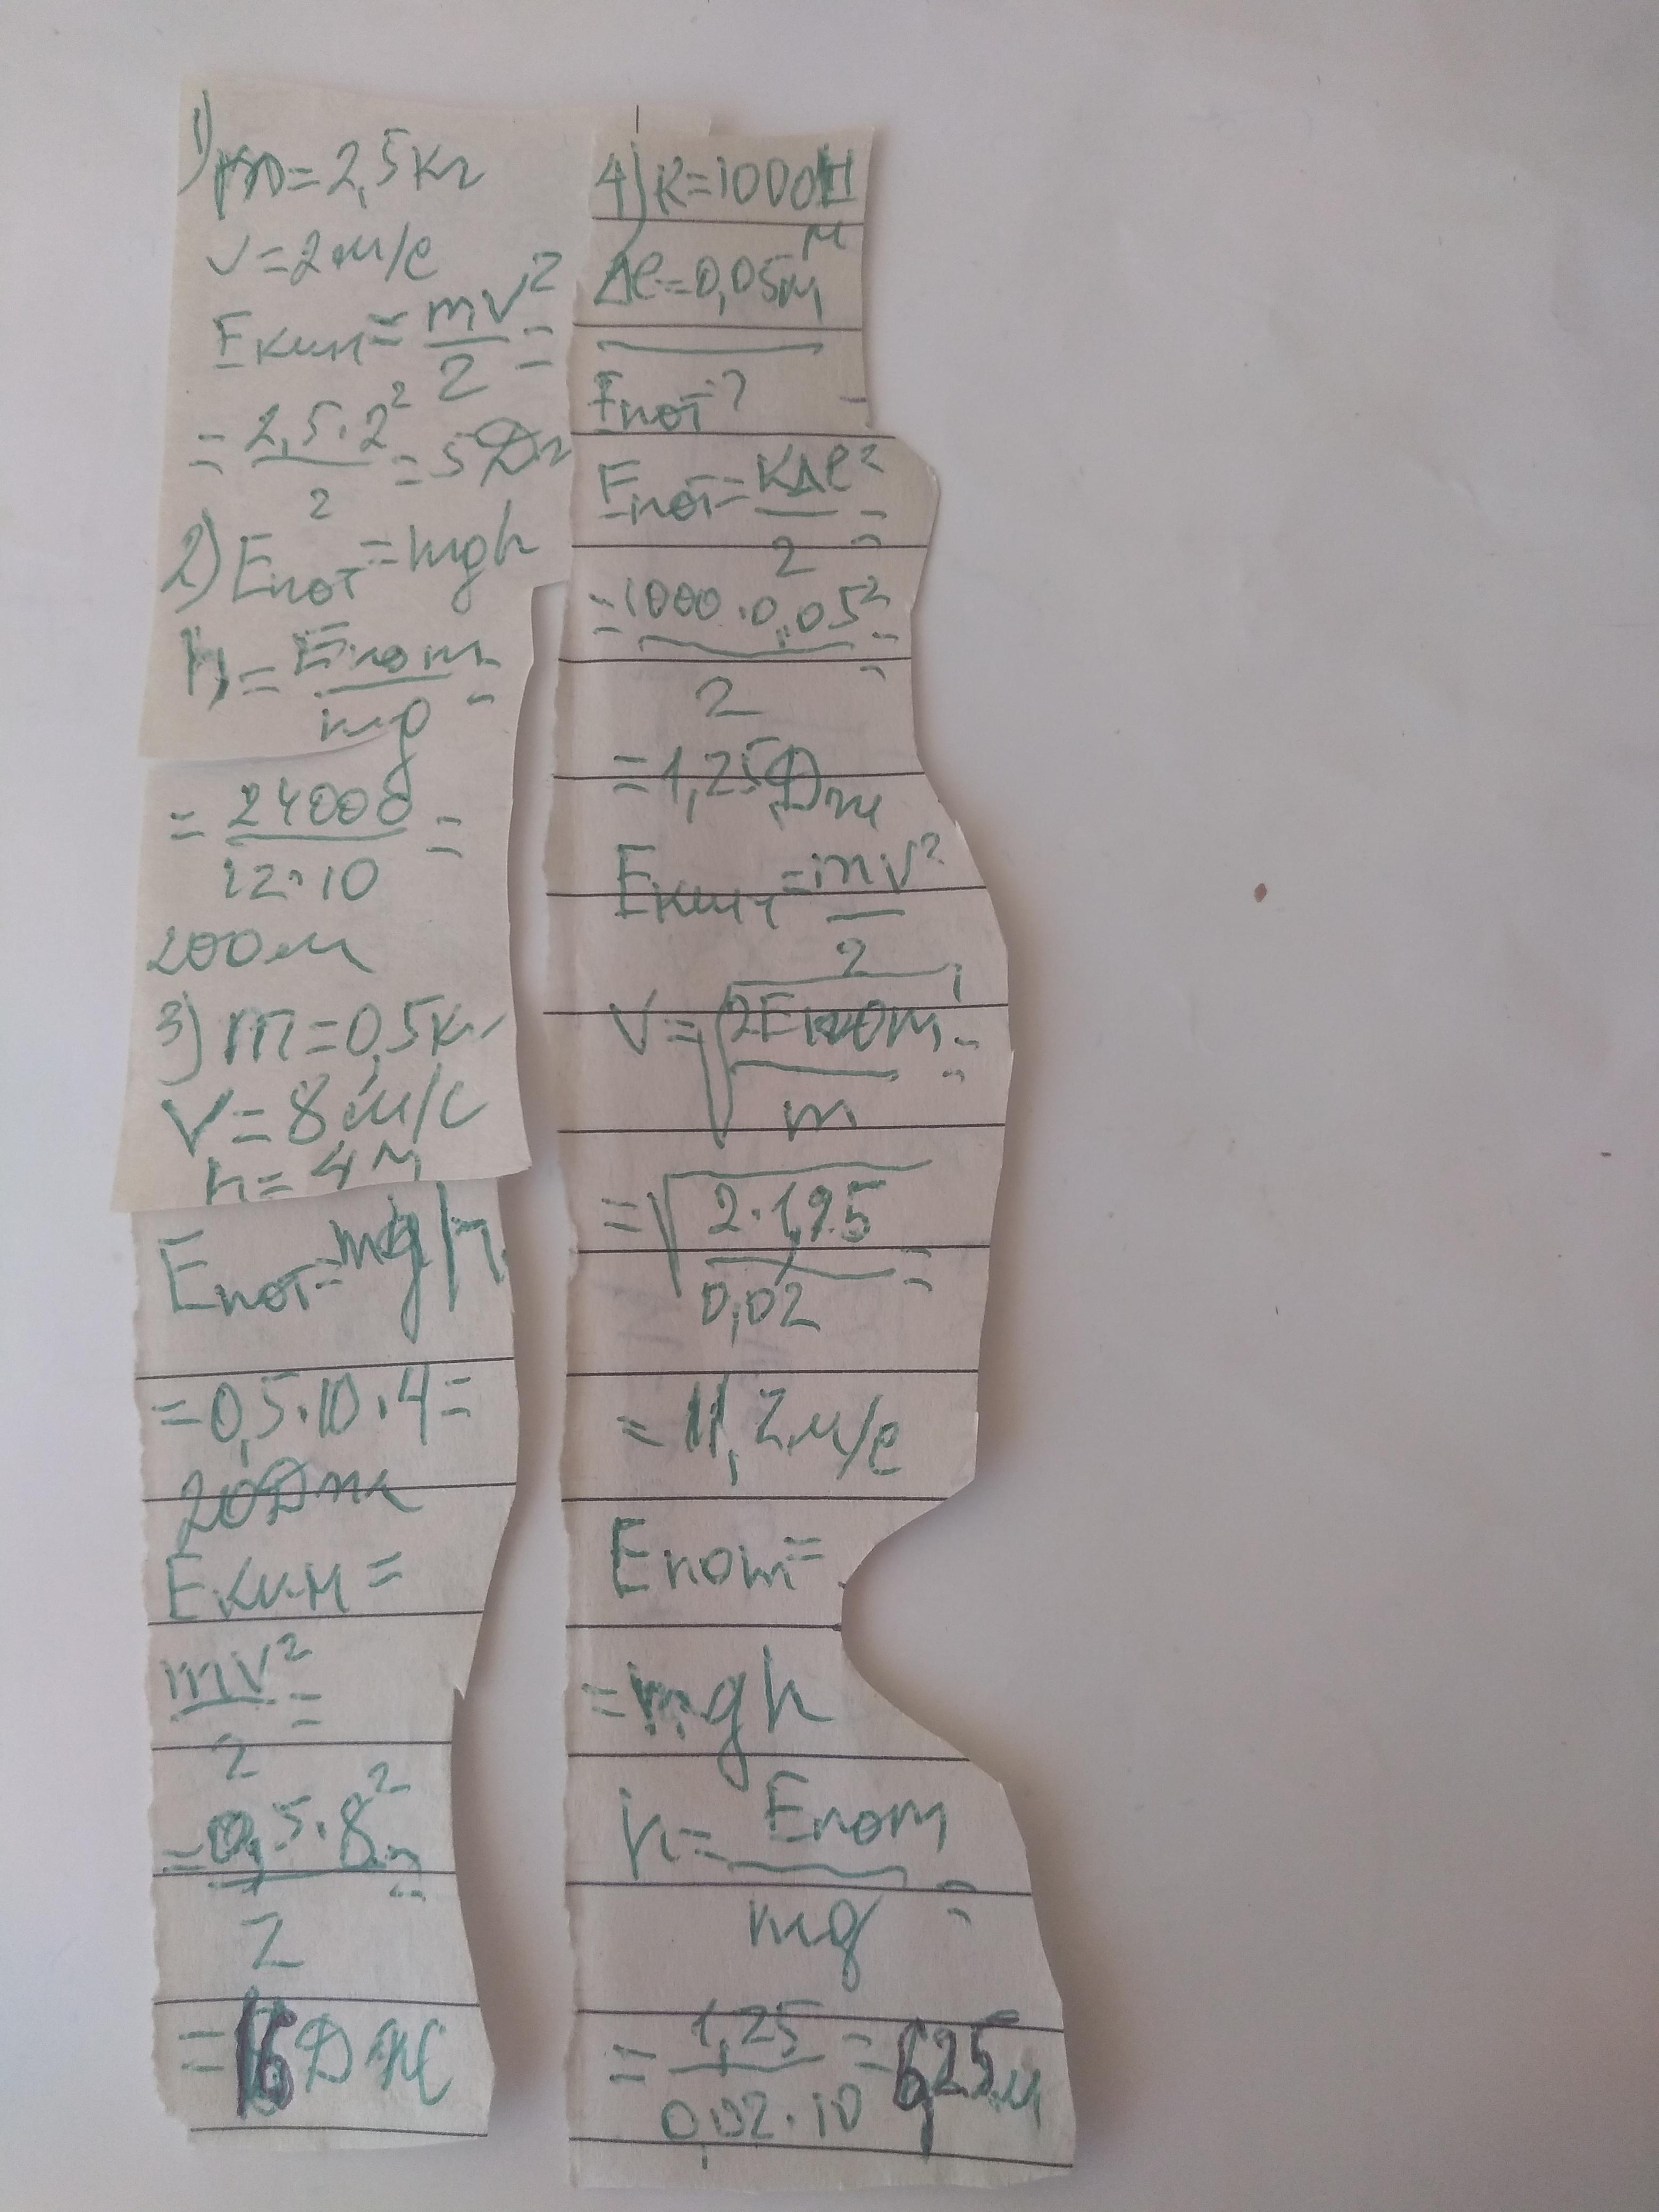 1) m=2,5кг
v=2м/с
Eкин=mv²/2=
=2,5·2²/2=5Дж
2) Eпот=mgh
h=Eпот/mg=
=24000/12·10=
200м
3) m=0,5кг
V=8м/с
h=4м
Eпот=mgh
=0,5·10·4=
20Дж
Eкин=
mv²/2=
=0,5·8²/2=
=16Дж
4) k=1000Н/м
Δl=0,05м
Eпот-?
Eпот=kΔl²/2=
=1000·0,05²/2=
=1,25Дж
Eкин=mV²/2
V=√2Eпот/m=
=√2·1,25/0,02=
=11,2м/с
Eпот=
=mgh
h=Eпот/mg=
=1,25/0,02·10=6,25м